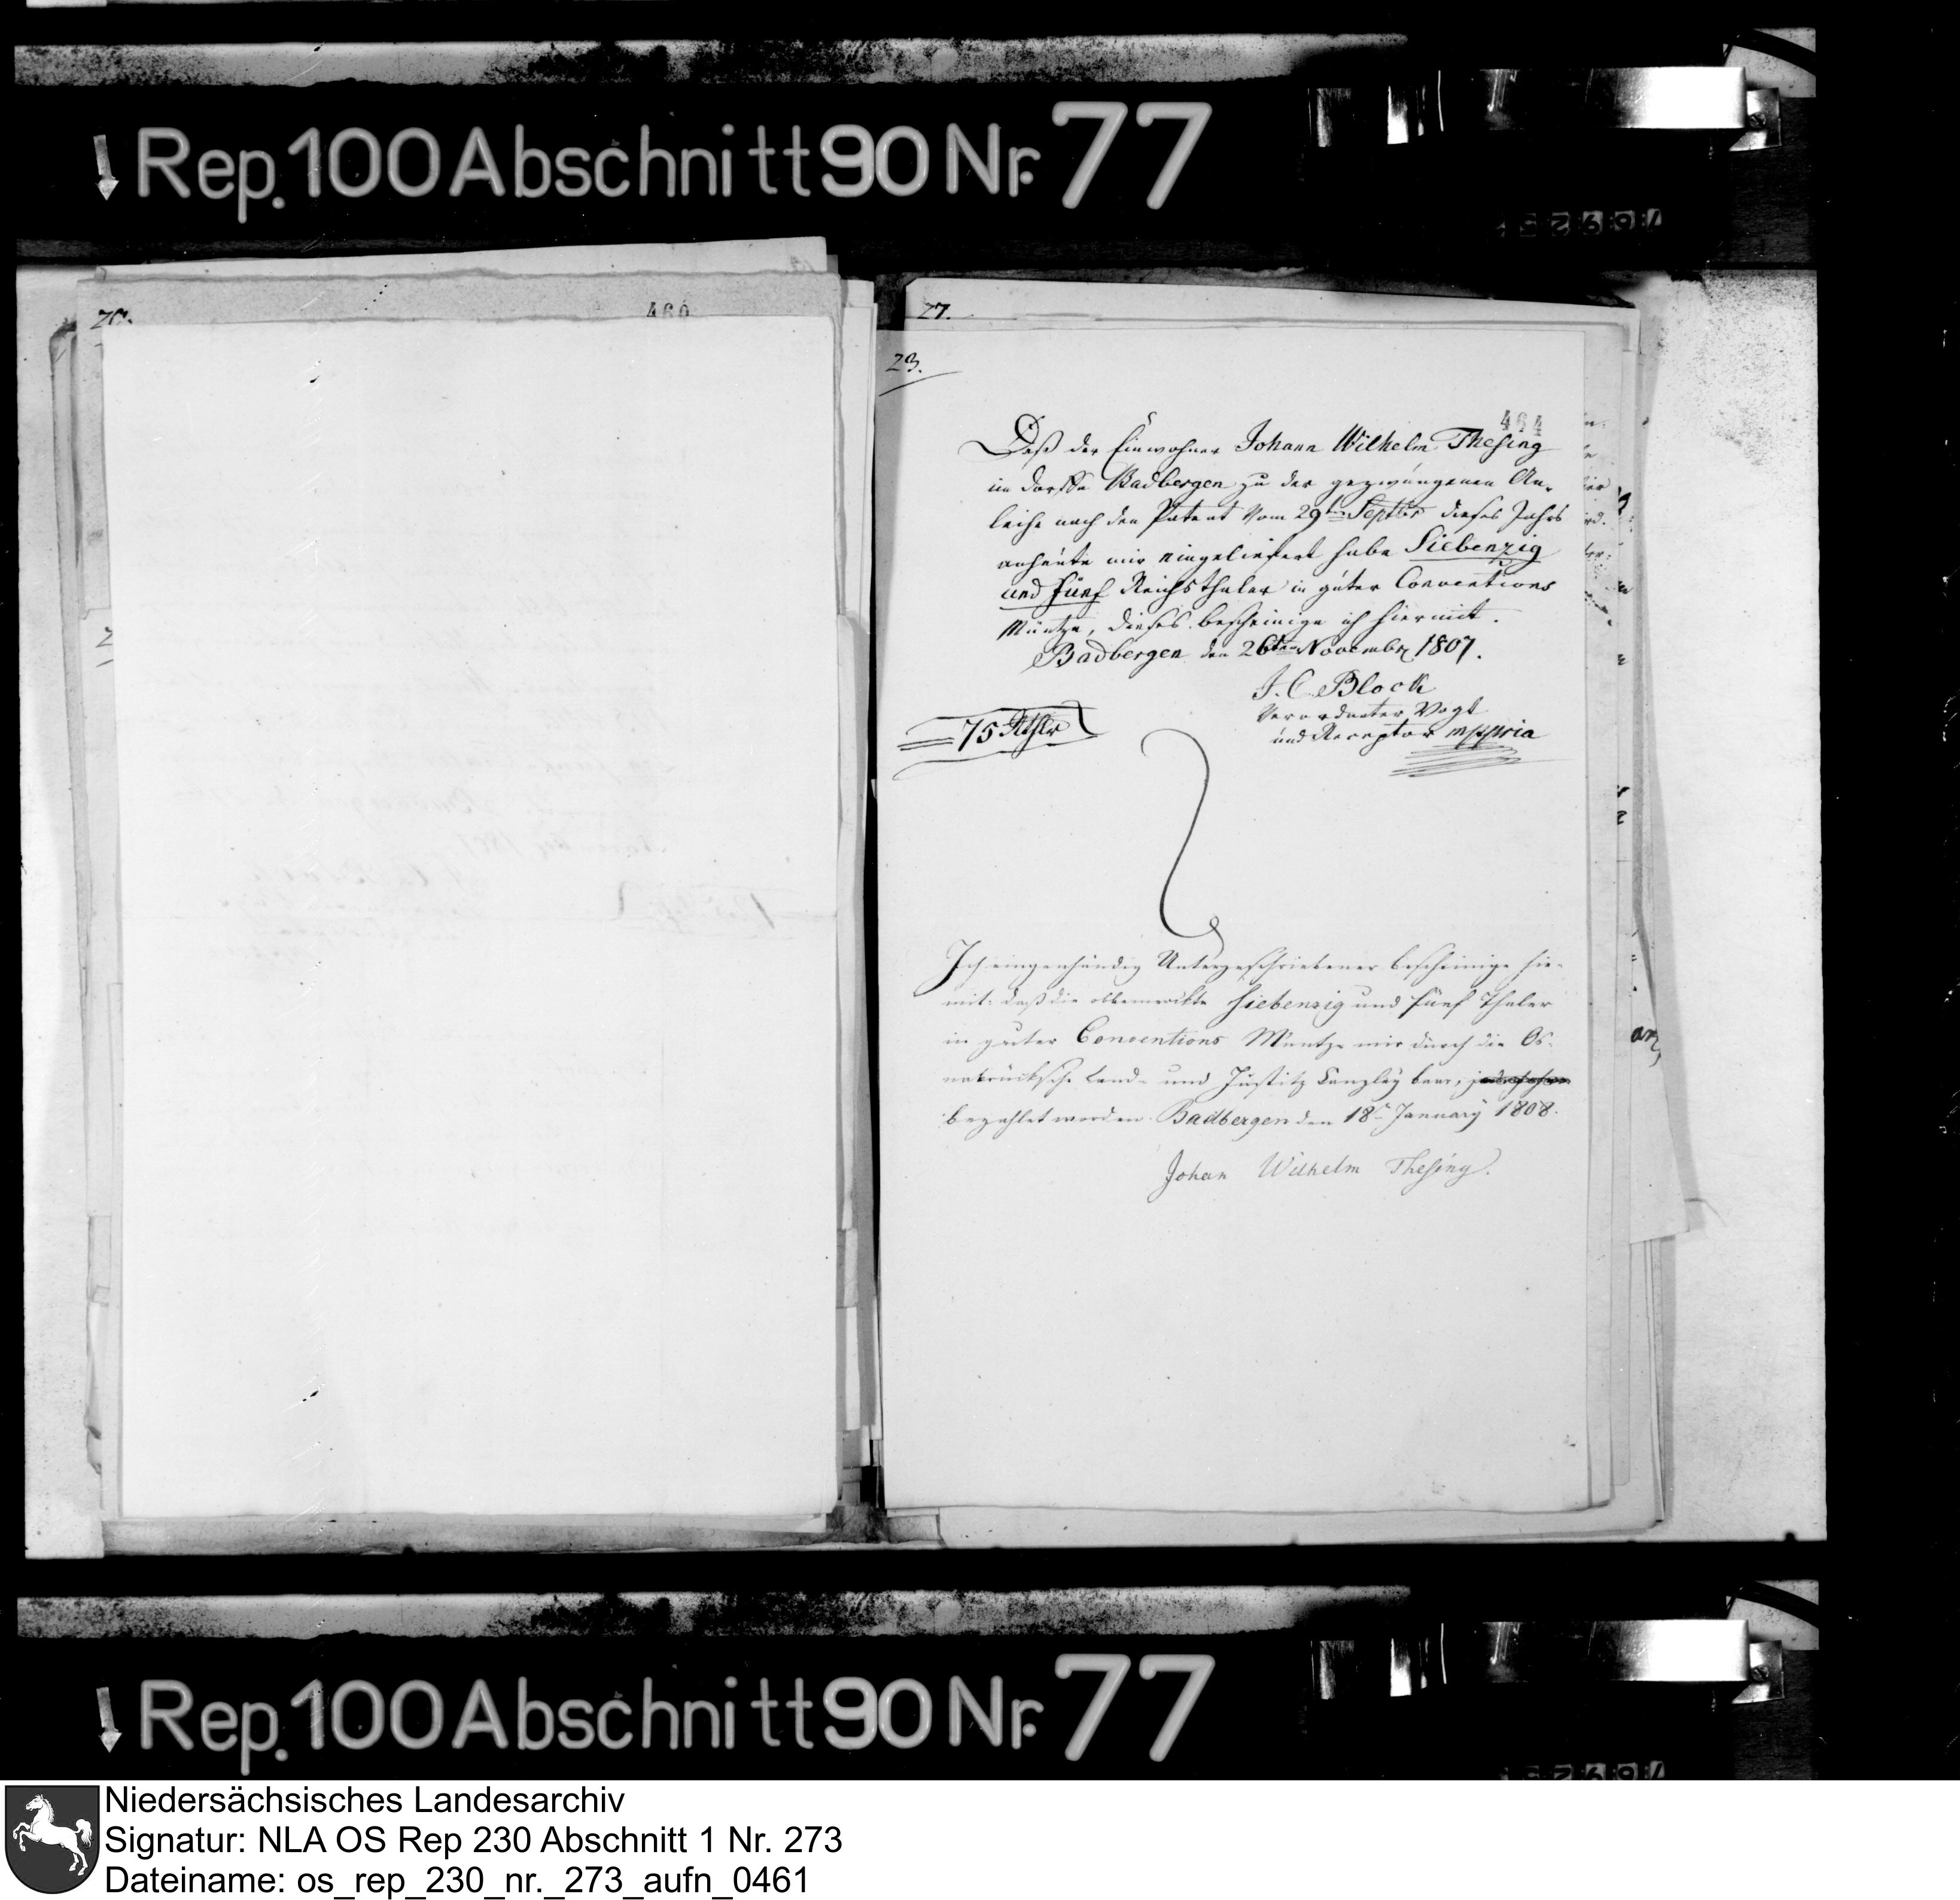 Rep. 100 Abschnitt 90 Nr. 77
460
27.
23.
464
Daß der Einwohner Johann Wilhelm Thesing
im Dorffe Badbergen zu der gezwungenen An-
leihe nach den Patent vom 29ten Septbr dieses Jahrs
anheute mir eingeliefert habe Siebenzig
und fünf Reichsthaler in guter Conventions
Müntze, dieses bescheinige ich hiermit.
Badbergen den 26ten Novembr 1807.
J. C. Block
Verordneter Vogt
und Receptor mppria
75 Rthlr
Ich eigenhändig Untergeschriebener bescheinige hie-
mit: daß die obbemerkte siebenzig und fünf Thaler
in guter Conventions Muntze mir durch die Os-
nabrücksche Land- und Justitz Canzley baar,
bezahlet worden. Badbergen den 18t January 1808.
Johan Wilhelm Thesing.
Rep. 100 Abschnitt 90 Nr. 77
Niedersächsisches Landesarchiv
Signatur: NLA OS Rep 230 Abschnitt 1 Nr. 273
Dateiname: os_rep_230_nr._273_aufn_0461